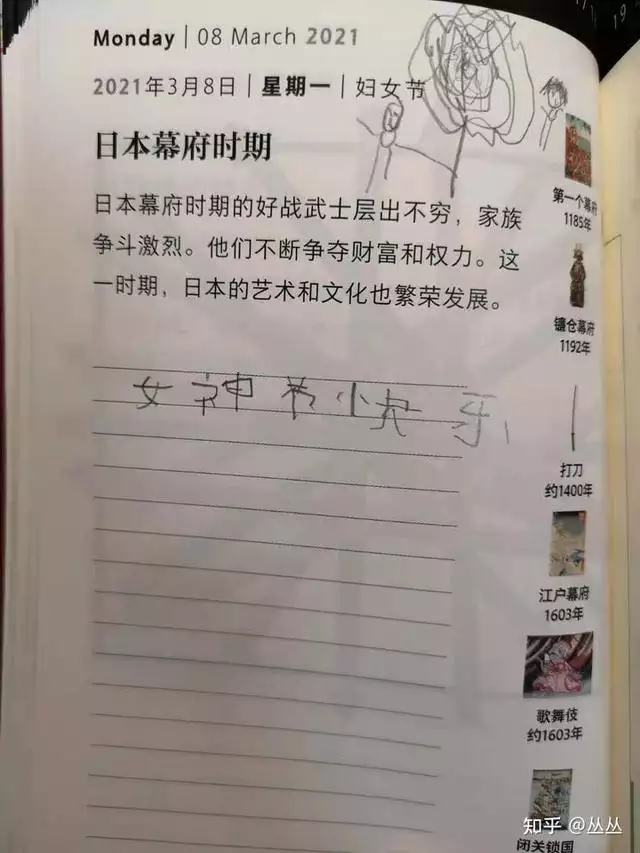 Monday | 08 March 2021
2021年3月8日 | 星期一 | 妇女节
日本幕府时期
日本幕府时期的好战武士层出不穷，家族
争斗激烈。他们不断争夺财富和权力。这
一时期，日本的艺术和文化也繁荣发展。
女神节快乐
第一个幕府
1185年
镰仓幕府
1192年
打刀
约1400年
江户幕府
1603年
歌舞伎
约1603年
闭关锁国
知乎 @丛丛